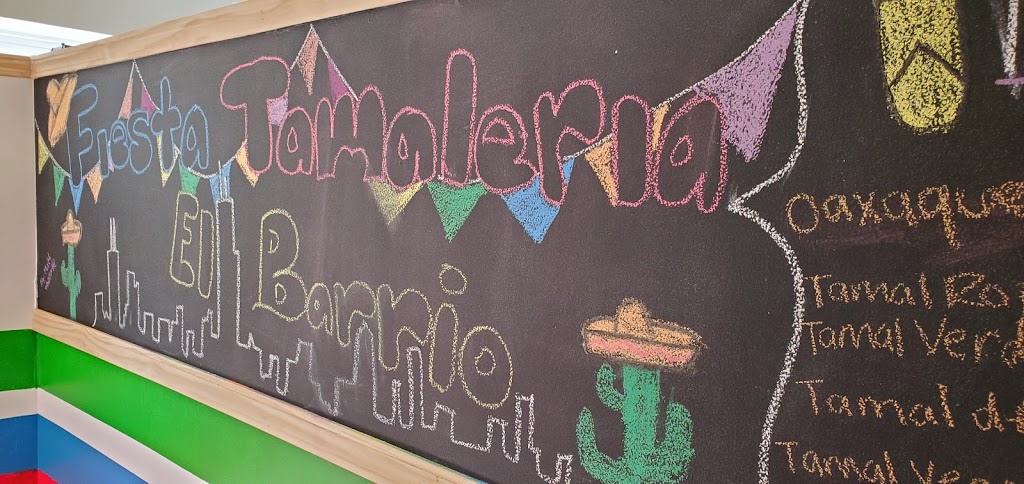 Fiesta Tamaleria
El Barrio
Tamal
Tamal Verd
Tamal de
Tamal